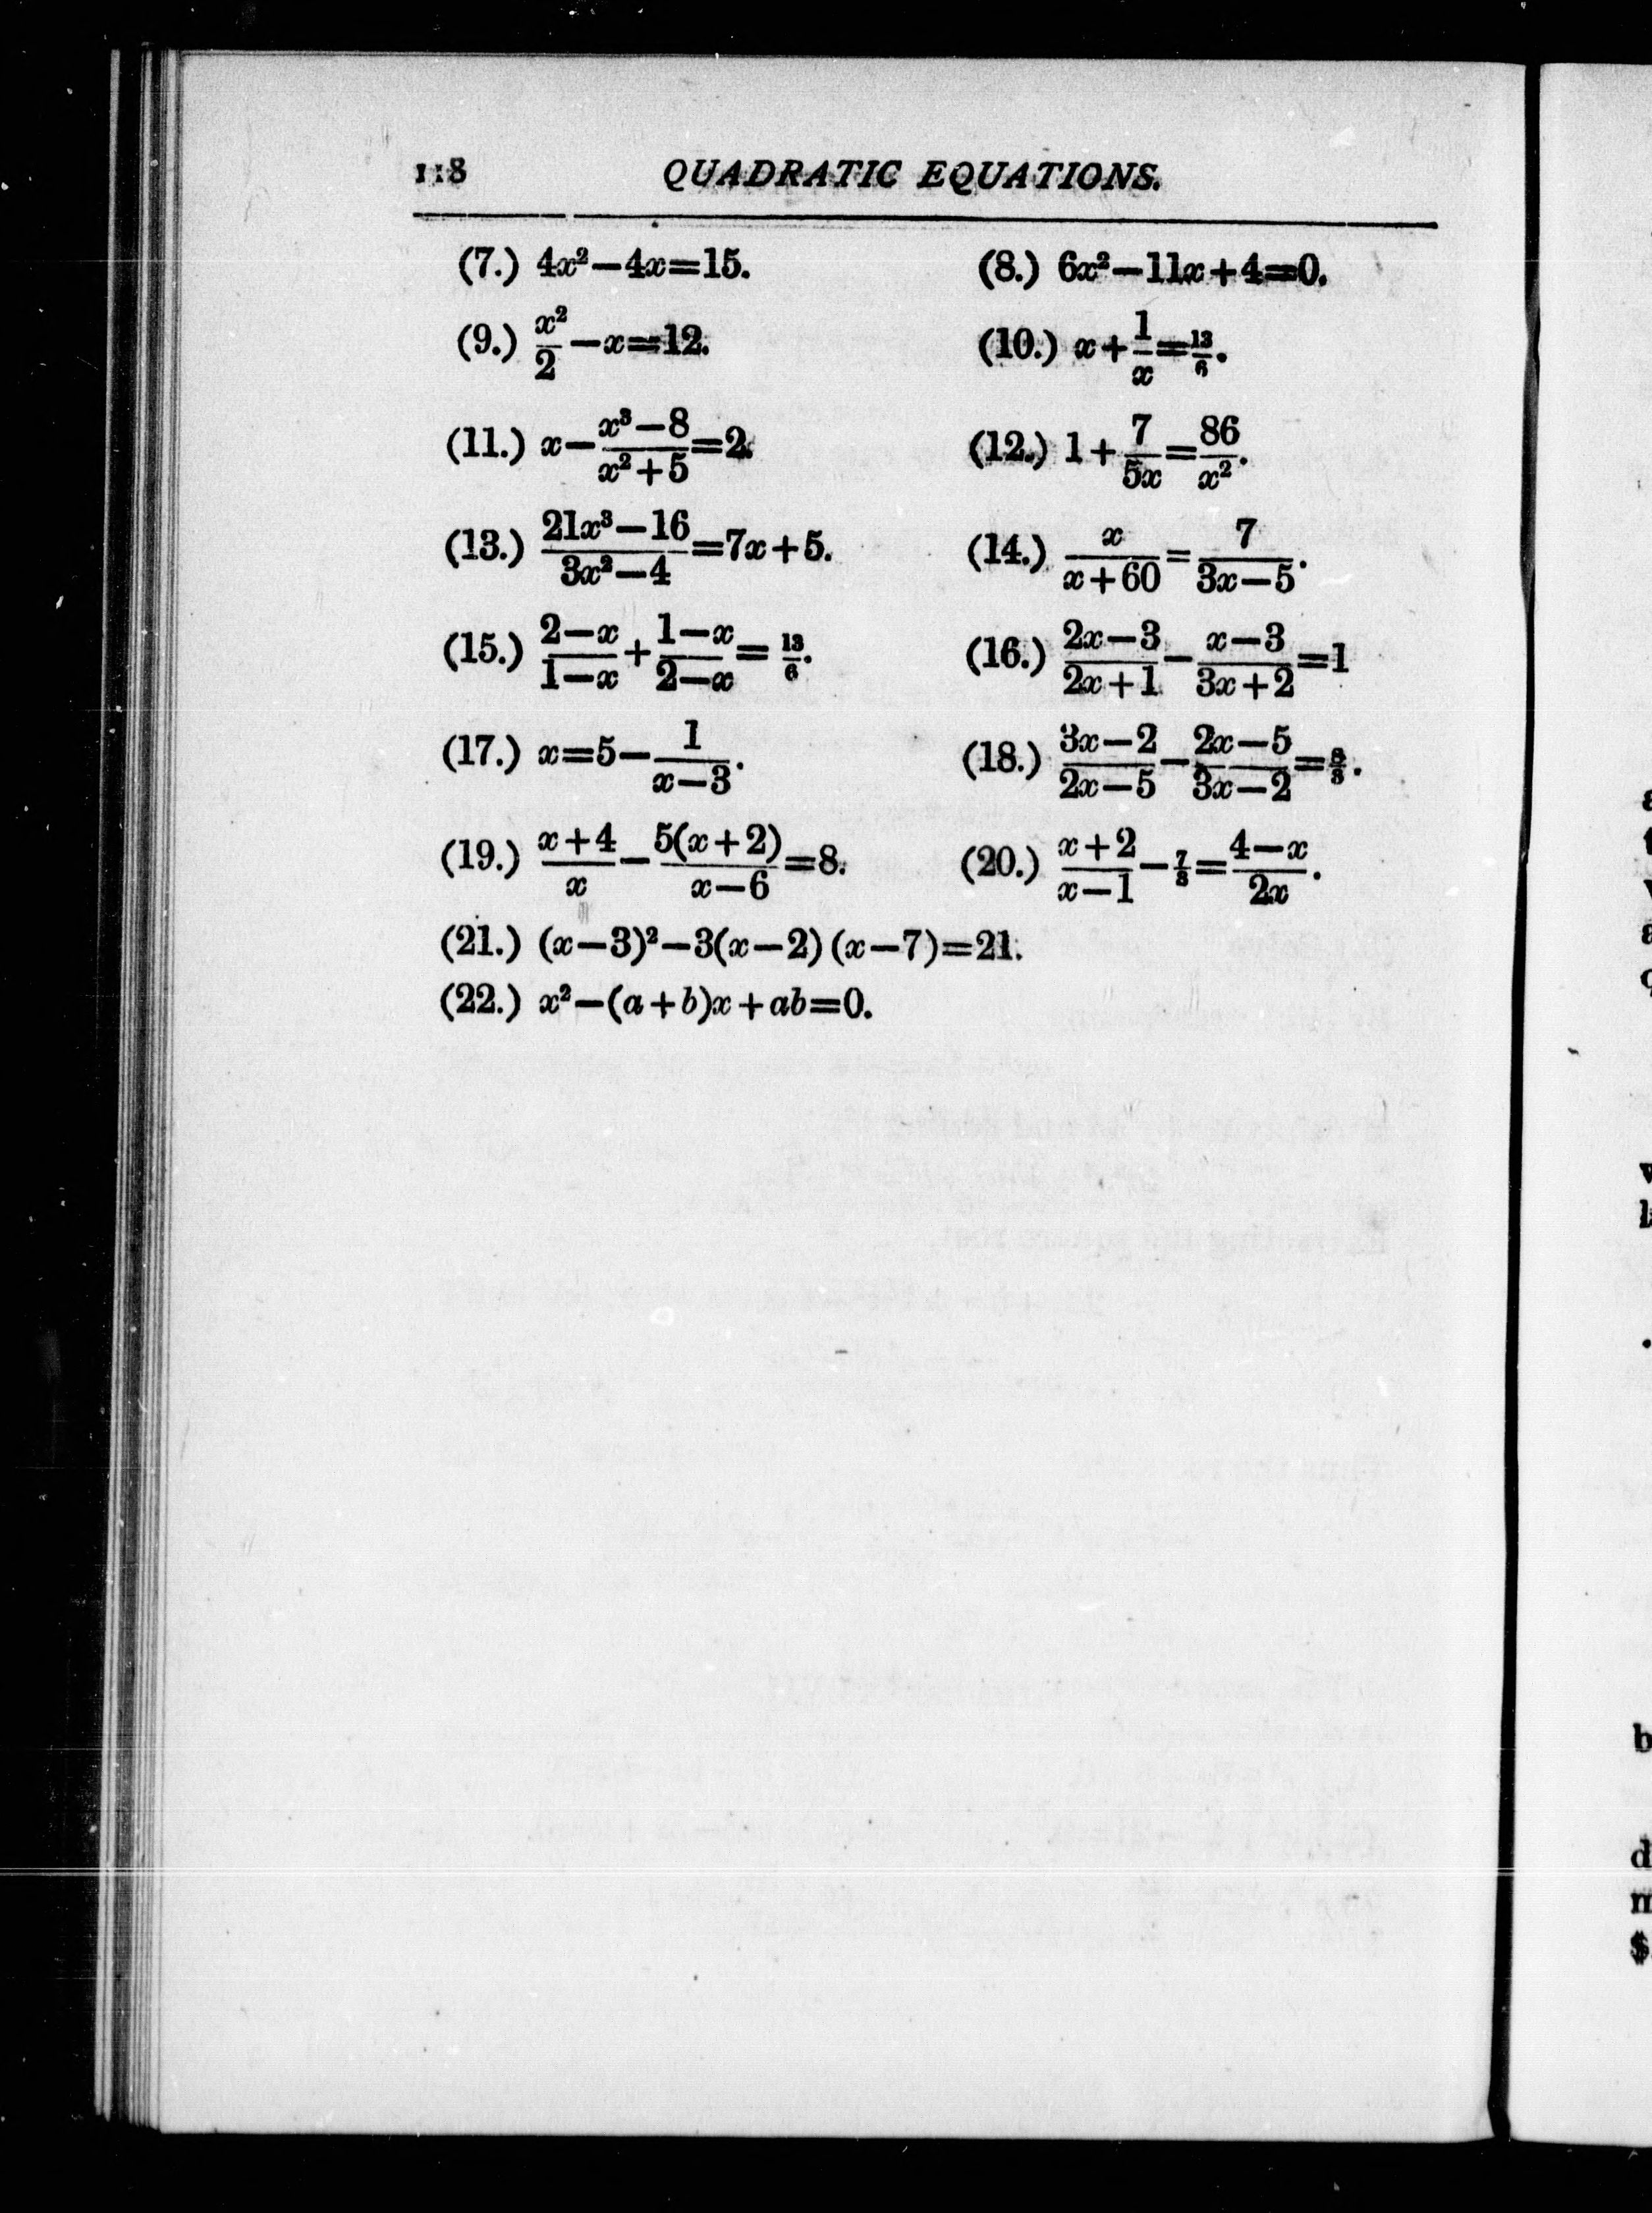 118 QUADRATIC EQUATIONS.
(7.) 4x²−4x=15. (8.) 6x²−11x+4=0.
(9.) x²/2−x=12. (10.) x+1/x=13/6.
(11.) x−(x³−8)/(x²+5)=2. (12.) 1+7/5x=86/x².
(13.) (21x³−16)/(3x²−4)=7x+5. (14.) x/(x+60)=7/(3x−5).
(15.) (2−x)/(1−x)+(1−x)/(2−x)=13/6. (16.) (2x−3)/(2x+1)−(x−3)/(3x+2)=1
(17.) x=5−1/(x−3). (18.) (3x−2)/(2x−5)−(2x−5)/(3x−2)=8/3.
(19.) (x+4)/x−5(x+2)/(x−6)=8. (20.) (x+2)/(x−1)−7/3=(4−x)/2x.
(21.) (x−3)²−3(x−2)(x−7)=21.
(22.) x²−(a+b)x+ab=0.